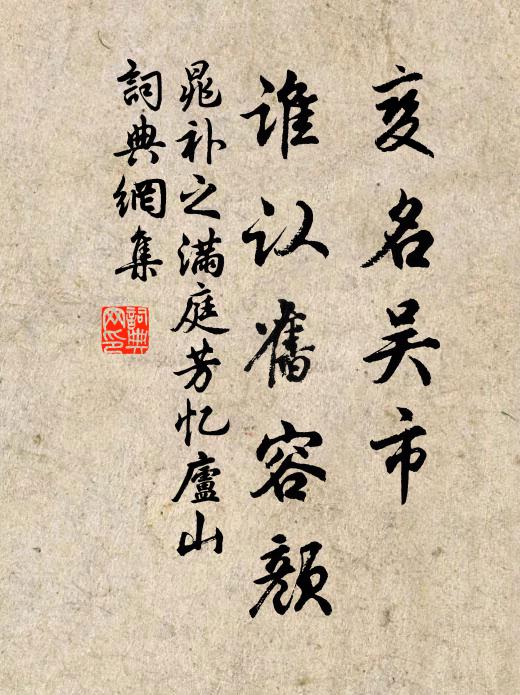 变名吴市
谁认旧容颜
晁补之满庭芳忆廬山
詞典網集
詞典網印